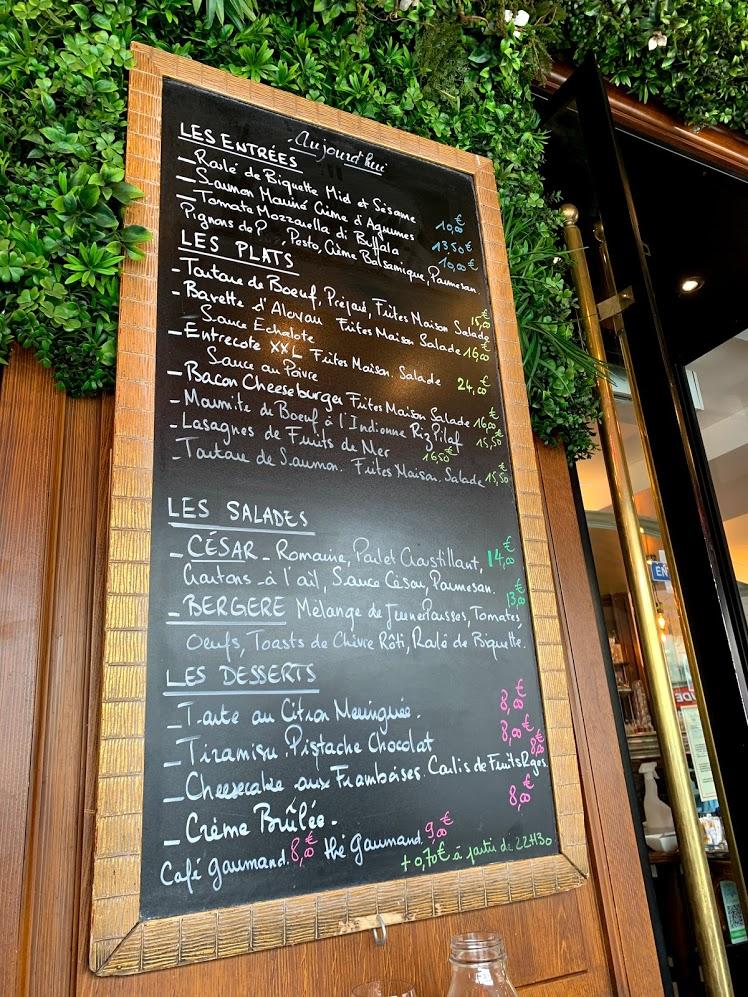 Aujourd'hui
LES ENTRÉES
- Roulé de Biquette Miel et Sésame 10,00€
- Saumon Mariné Crème d'Agrumes 13,50€
- Tomate Mozzarella di Buffala 10,00€
Pignons de P , Pesto, Crème Balsamique, Parmesan.
LES PLATS
- Tartare de Boeuf, Préparé, Frites Maison Salade 15,00€
- Bavette d'Aloyau Frites Maison Salade 16,00€
Sauce Echalote
- Entrecote XXL Frites Maison. Salade 24,00€
Sauce au Poivre
- Bacon Cheeseburger Frites Maison Salade 16,00€
- Marmite de Boeuf à l'Indienne Riz Pilaf 15,50€
- Lasagnes de Fruits de Mer 16,50€
- Tartare de Saumon. Frites Maison. Salade 15,50€
LES SALADES
- CÉSAR - Romaine, Poulet Croustillant, 14,00€
Croutons à l'ail, Sauce César, Parmesan.
- BERGERE Mélange de Jeune Pousses, Tomates, 13,00€
Oeufs, Toasts de Chèvre Rôti, Roulé de Biquette.
LES DESSERTS
- Tarte au Citron Meringuée. 8,00€
- Tiramisu Pistache Chocolat 8,00€
- Cheesecake aux Framboises. Coulis de Fruits Rges 8,00€
- Crème Brûlée. 8,00€
Café Gourmand. 8,00€ thé Gourmand. 9,00€
+ 0,70€ à partir de 22H30
EN